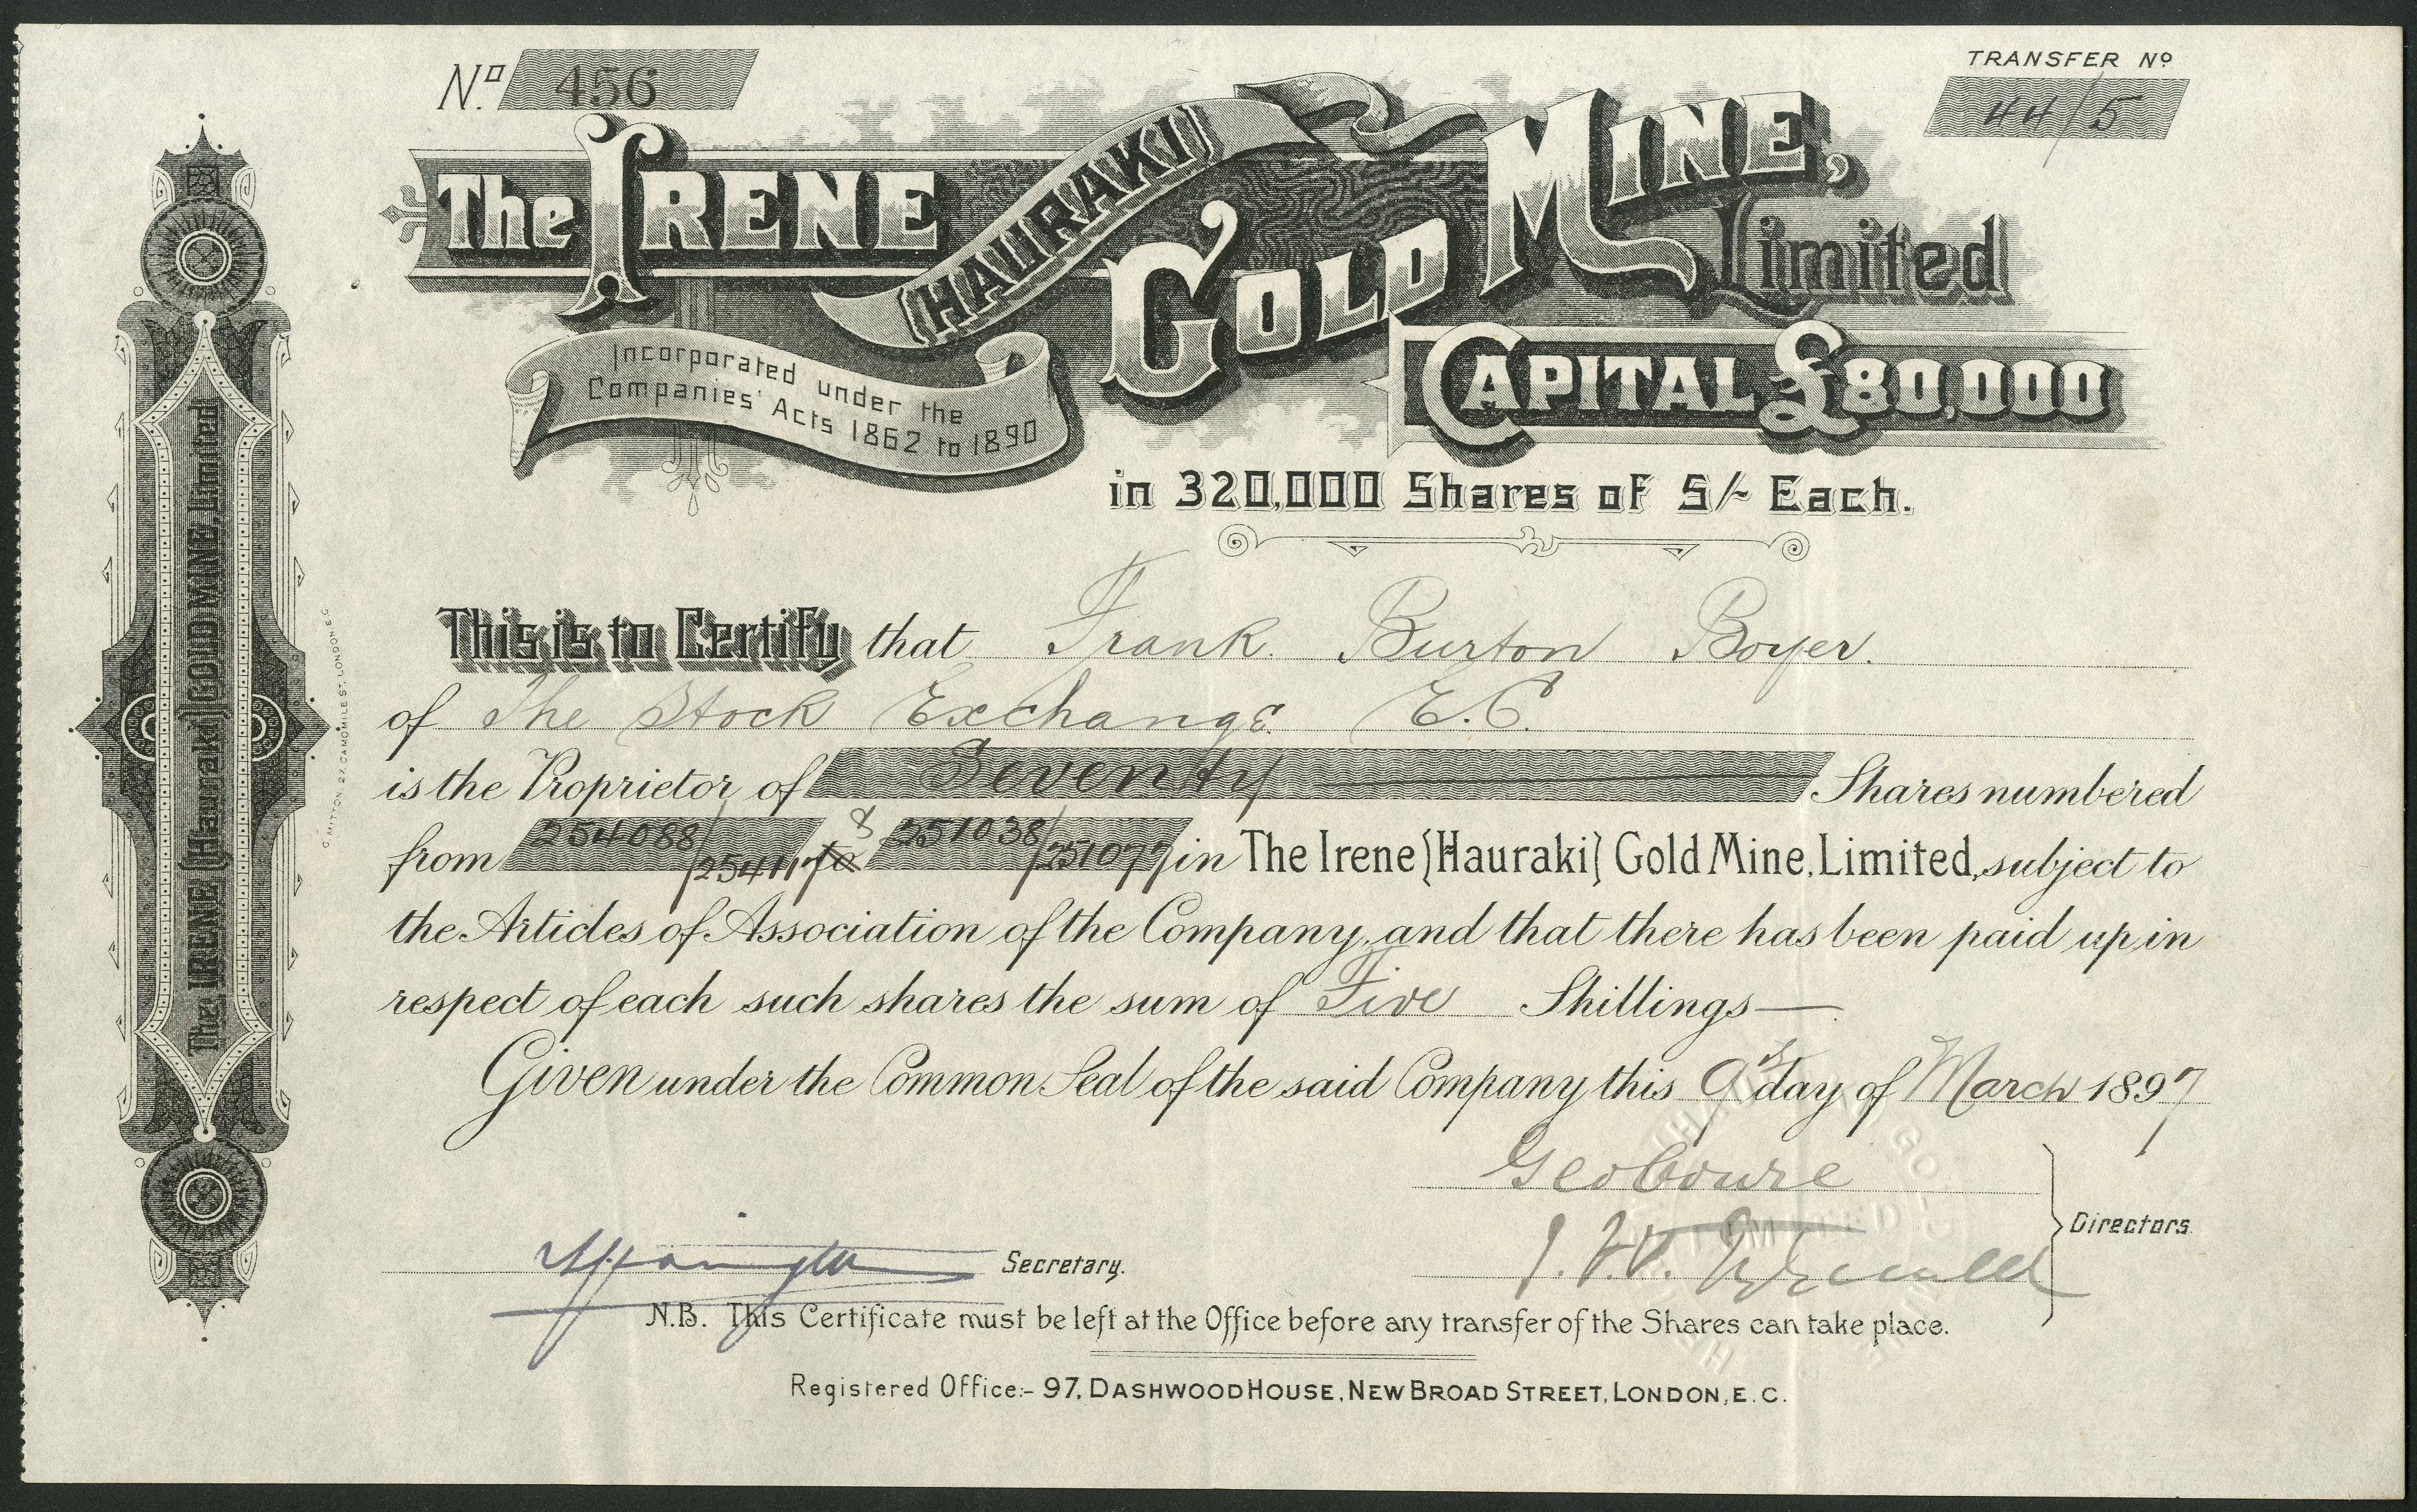 No. 456
TRANSFER No
44/5
The IRENE (HAURAKI) GOLD MINE, Limited
Incorporated under the
Companies' Acts 1862 to 1890
CAPITAL £80,000
in 320,000 Shares of 5/- Each.
This is to Certify that Frank Burton Boyer.
of The Stock Exchange E.C.
is the Proprietor of Seventy Shares numbered
from 254088/254117 to & 251038/251077 in The Irene (Hauraki) Gold Mine, Limited, subject to
the Articles of Association of the Company, and that there has been paid up in
respect of each such shares the sum of Five Shillings
Given under the Common Seal of the said Company this 9th day of March 1897
Directors.
Secretary.
N.B. This Certificate must be left at the Office before any transfer of the Shares can take place.
Registered Office:- 97, DASHWOOD HOUSE, NEW BROAD STREET, LONDON, E.C.
The IRENE (Hauraki) GOLD MINE, Limited
C. MITTON, 27, CAMOMILE ST. LONDON. E.C.